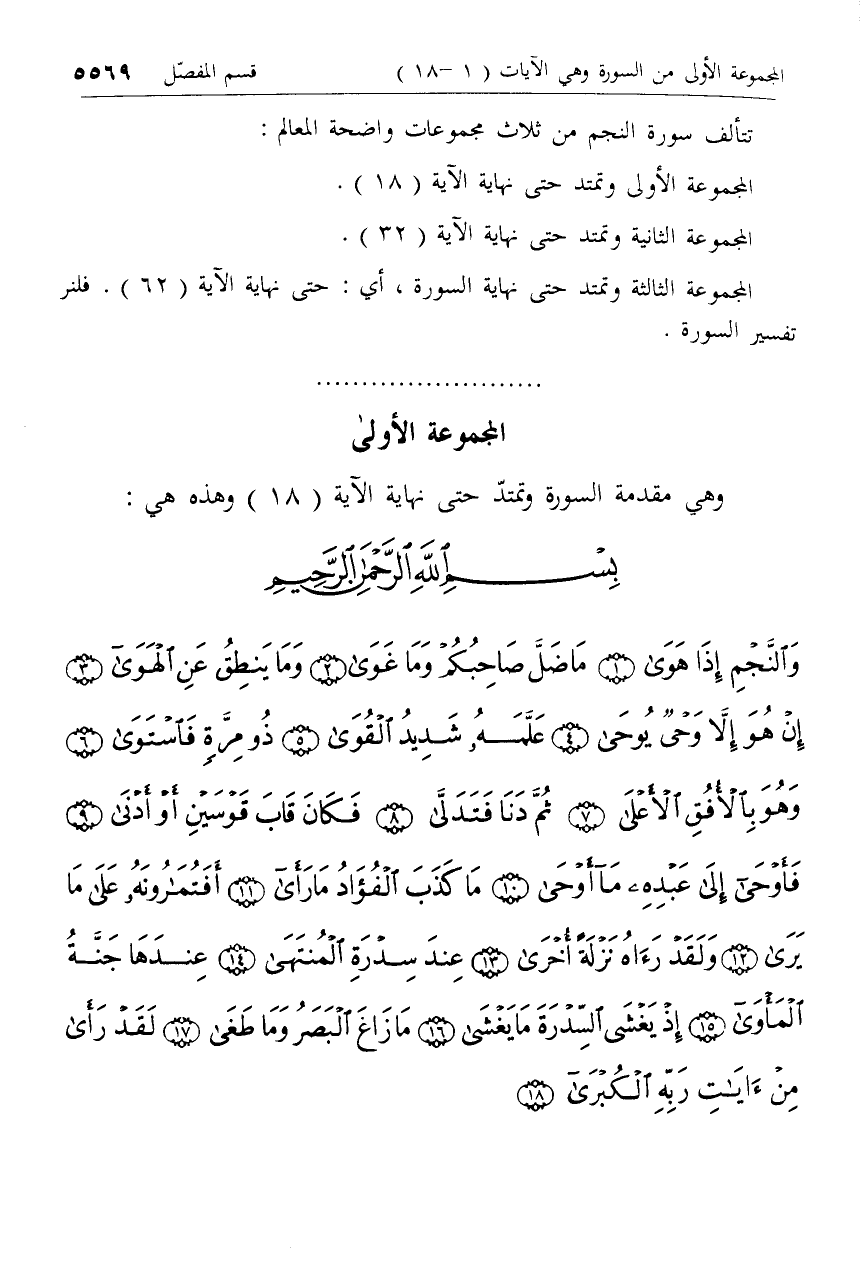 المجموعة الأولى من السورة وهي الآيات ( ١ -١٨ ) قسم المفصّل ٥٥٦٩
تتألف سورة النجم من ثلاث مجموعات واضحة المعالم :
المجموعة الأولى وتمتد حتى نهاية الآية ( ١٨ ) .
المجموعة الثانية وتمتد حتى نهاية الآية ( ٣٢ ) .
المجموعة الثالثة وتمتد حتى نهاية السورة ، أي : حتى نهاية الآية ( ٦٢ ) . فلنر
تفسير السورة .
.........................
المجموعة الأولىٰ
وهي مقدمة السورة وتمتدّ حتى نهاية الآية ( ١٨ ) وهذه هي :
بِسْمِ ٱللَّهِ ٱلرَّحْمَٰنِ ٱلرَّحِيمِ
وَٱلنَّجْمِ إِذَا هَوَىٰ ١ مَا ضَلَّ صَاحِبُكُمْ وَمَا غَوَىٰ ٢ وَمَا يَنطِقُ عَنِ ٱلْهَوَىٰٓ ٣
إِنْ هُوَ إِلَّا وَحْىٌ يُوحَىٰ ٤ عَلَّمَهُۥ شَدِيدُ ٱلْقُوَىٰ ٥ ذُو مِرَّةٍ فَٱسْتَوَىٰ ٦
وَهُوَ بِٱلْأُفُقِ ٱلْأَعْلَىٰ ٧ ثُمَّ دَنَا فَتَدَلَّىٰ ٨ فَكَانَ قَابَ قَوْسَيْنِ أَوْ أَدْنَىٰ ٩
فَأَوْحَىٰٓ إِلَىٰ عَبْدِهِۦ مَآ أَوْحَىٰ ١٠ مَا كَذَبَ ٱلْفُؤَادُ مَا رَأَىٰٓ ١١ أَفَتُمَٰرُونَهُۥ عَلَىٰ مَا
يَرَىٰ ١٢ وَلَقَدْ رَءَاهُ نَزْلَةً أُخْرَىٰ ١٣ عِندَ سِدْرَةِ ٱلْمُنتَهَىٰ ١٤ عِندَهَا جَنَّةُ
ٱلْمَأْوَىٰٓ ١٥ إِذْ يَغْشَى ٱلسِّدْرَةَ مَا يَغْشَىٰ ١٦ مَا زَاغَ ٱلْبَصَرُ وَمَا طَغَىٰ ١٧ لَقَدْ رَأَىٰ
مِنْ ءَايَٰتِ رَبِّهِ ٱلْكُبْرَىٰٓ ١٨